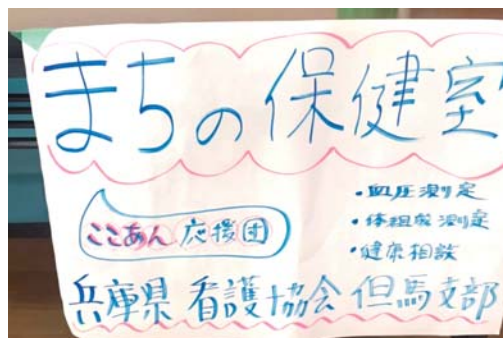 まちの保健室
ここあん応援団
・血圧測定
・体組成測定
・健康相談
兵庫県看護協会 但馬支部